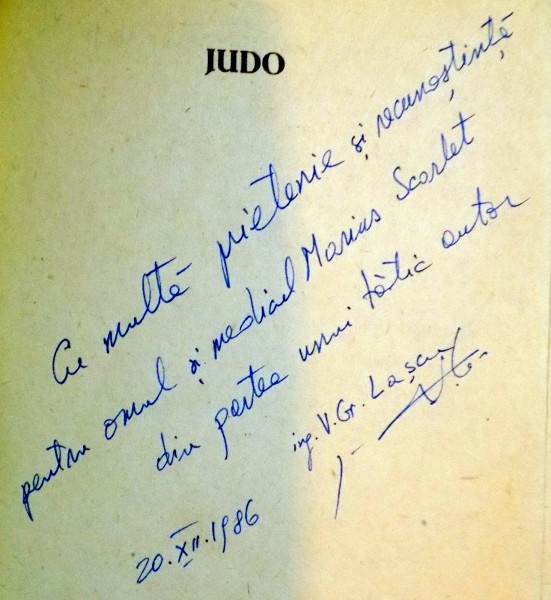 JUDO
Cu multă prietenie și recunoștință
pentru omul și medicul Marius Scarlet
din partea unui tânăr autor
ing. V. Gr. Lașcu
20.XII.1986